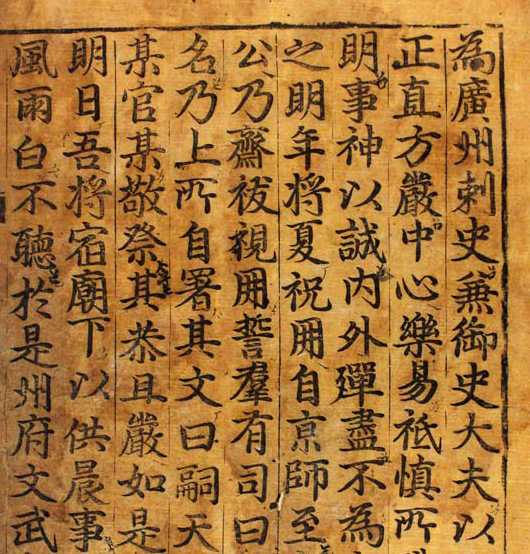 為廣州刺史兼御史大夫以
正直方嚴中心樂易祗慎所
明事神以誠内外殫盡不為
之明年将夏祝冊自京師至
公乃齋祓視冊誓羣有司曰
名乃上所自署其文曰嗣天
某官某敬祭其恭且嚴如是
明日吾将宿廟下以供晨事
風雨白不聽於是州府文武